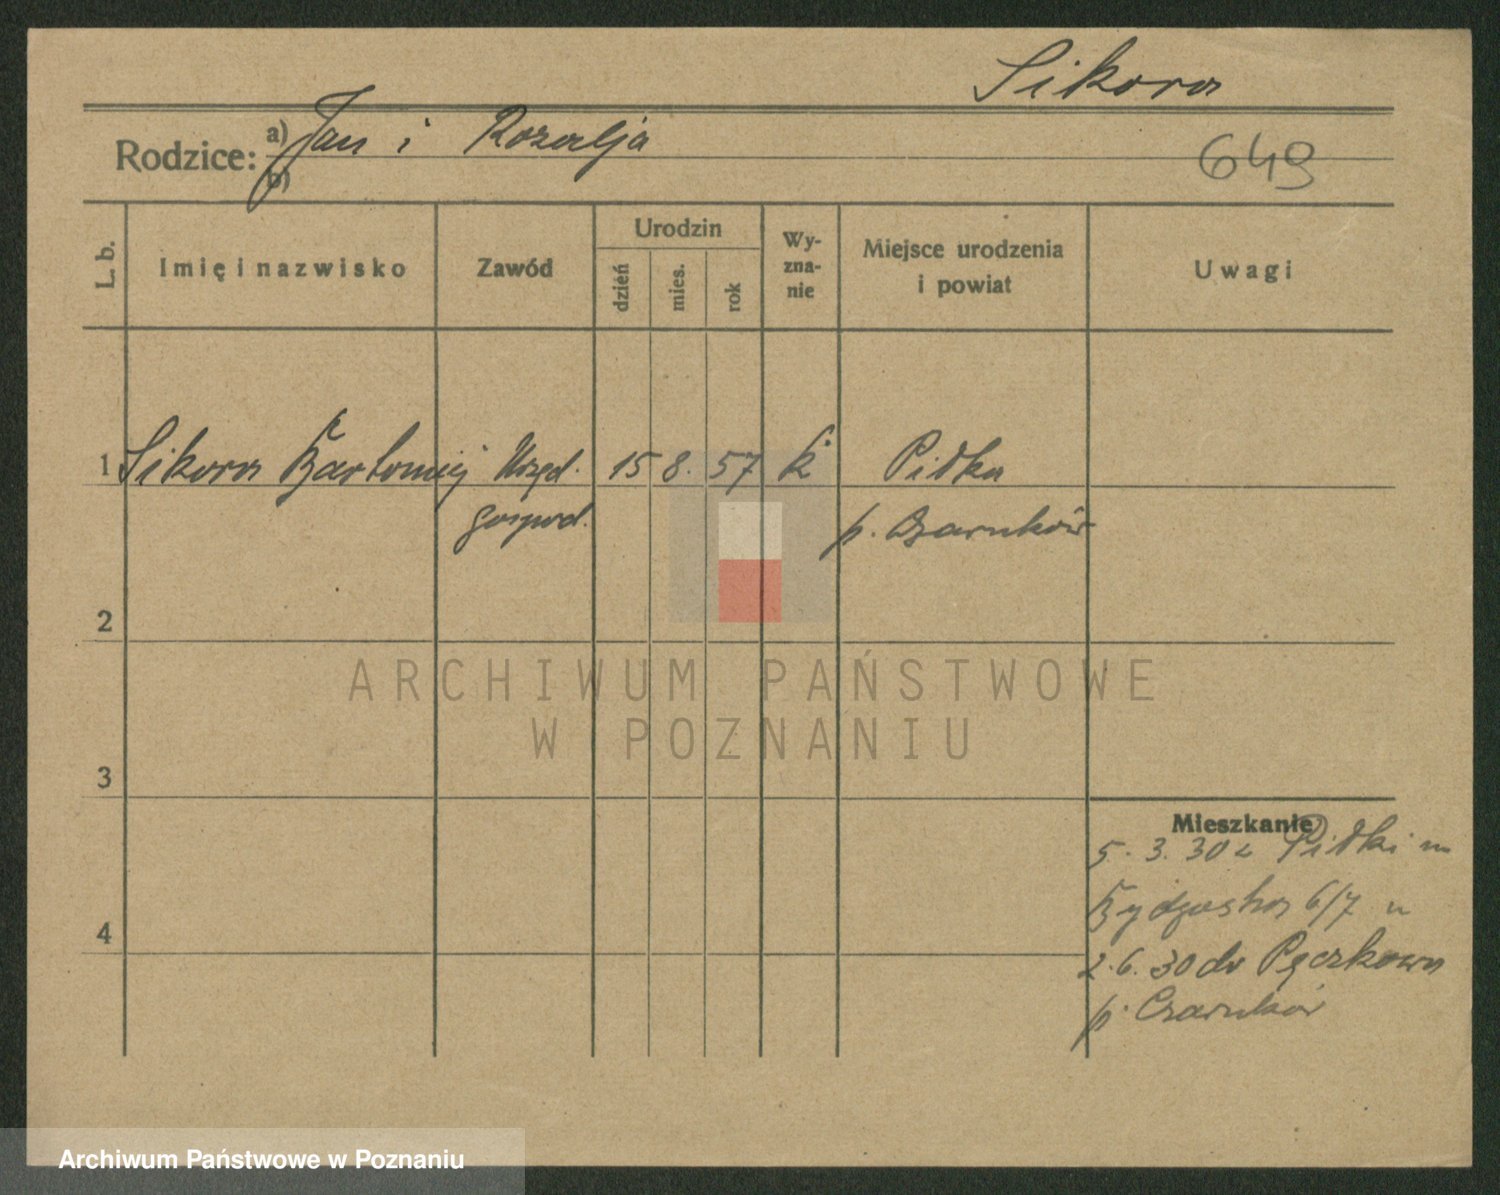 Sikora
Rodzice: a) Jan i Rozalja
b)
649
L. b.
Imię i nazwisko
Zawód
Urodzin
dzień
mies.
rok
Wy-
zna-
nie
Miejsce urodzenia
i powiat
Uwagi
1 Sikora Bartomiej Urzęd. 15 8. 57 k. Piłka
gospod. p. Czarnków
2
3
4
Mieszkanie
5. 3. 30 z Piłki
Bydgoska 6/7
2. 6. 30 do Pęczkowa
p. Czarnków
ARCHIWUM PAŃSTWOWE
W POZNANIU
Archiwum Państwowe w Poznaniu